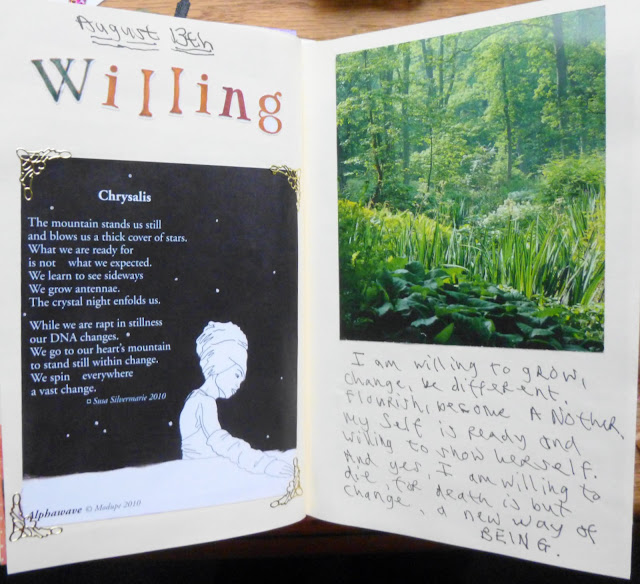 August 13th
Willing
Chrysalis
The mountain stands us still
and blows us a thick cover of stars.
What we are ready for
is not what we expected.
We learn to see sideways
We grow antennae.
The crystal night enfolds us.
While we are rapt in stillness
our DNA changes.
We go to our heart's mountain
to stand still within change.
We spin everywhere
a vast change.
¤ Susa Silvermarie 2010
Alphawave © Modupe 2010
I am willing to grow,
change, be different,
flourish, become ANother.
My Self is Ready and
willing to show herself.
And yes, I am willing to
die, for death is but
change, a new way of
BEING.